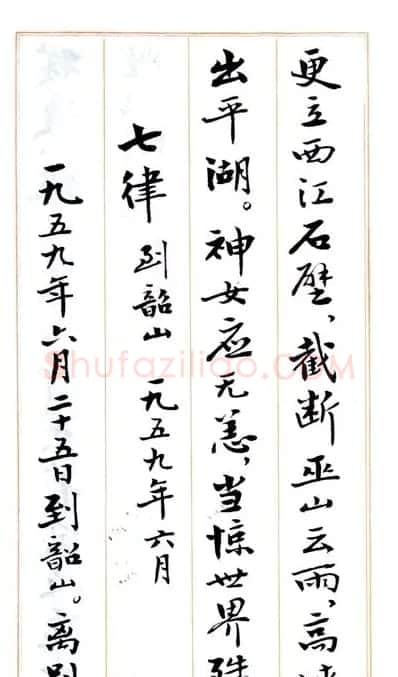 更立西江石壁，截断巫山云雨，高
出平湖。神女应无恙，当惊世界殊
七律 到韶山 一九五九年六月
一九五九年六月二十五日到韶山。离别
Shufaziliao.COM